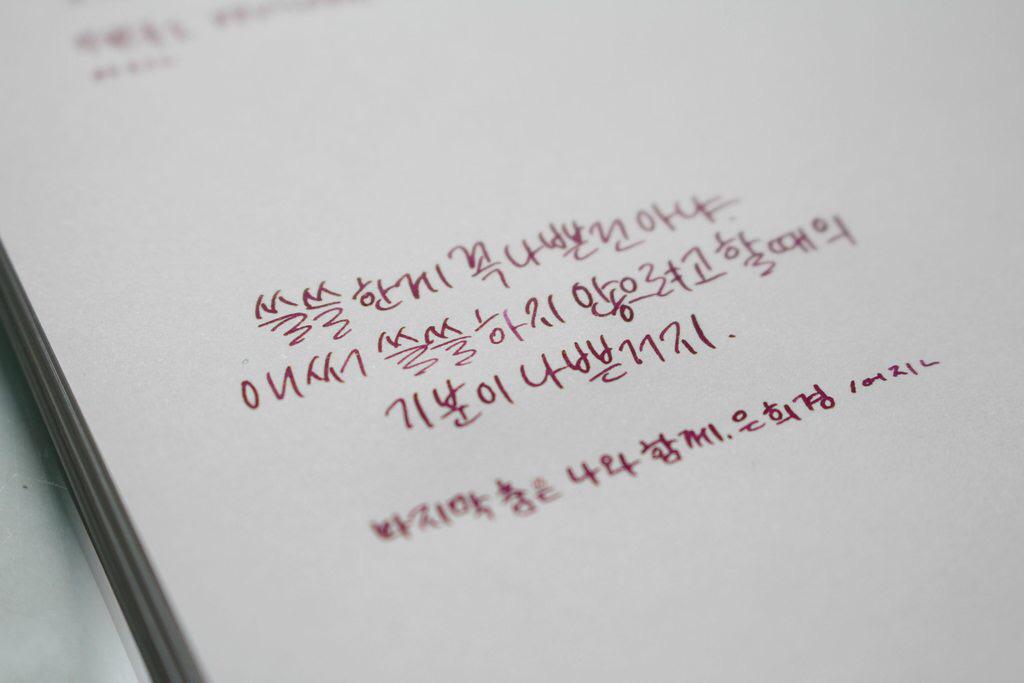 쓸쓸한게 꼭 나쁜건 아냐.
애써 쓸쓸하지 않으려고 할때의
기분이 나쁜거지.
마지막 춤은 나와 함께. 은희경